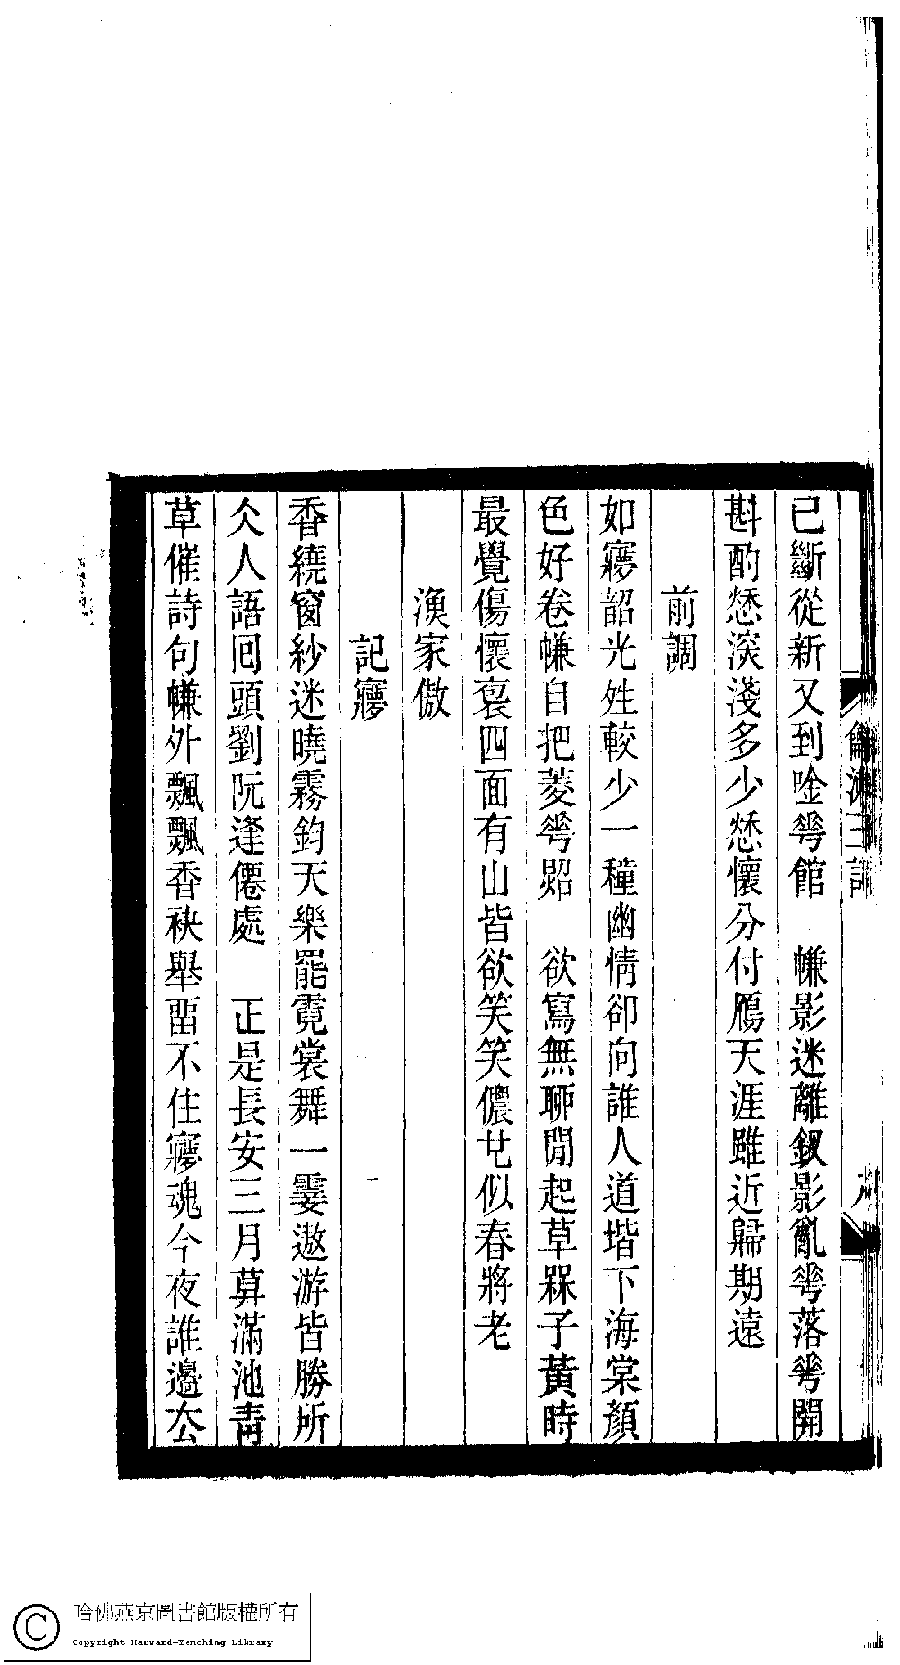 已斷從新又到唫蕐館　㡘影迷離釵影亂蕐落蕐開
斟酌愁深淺多少愁懷分付鴈天涯雖近歸期遠
前調
如寱韶光姓較少一種幽情卻向誰人道堦下海棠顏
色好卷㡘自把菱蕐照　欲寫無聊閒起草槑子黃時
最覺傷懷裒四面有山皆欲笑笑儂也似春將老
漁家傲
記寱
香繞窗紗迷曉霧鈞天樂罷霓裳舞一霎遨游皆勝所
仌人語回頭劉阮逢僊處　正是長安三月莫滿池靑
草催詩句㡘外飄飄香袂舉畱不住寱魂今夜誰邊厺
哈佛燕京圖書館版權所有
Copyright Harvard-Yenching Library